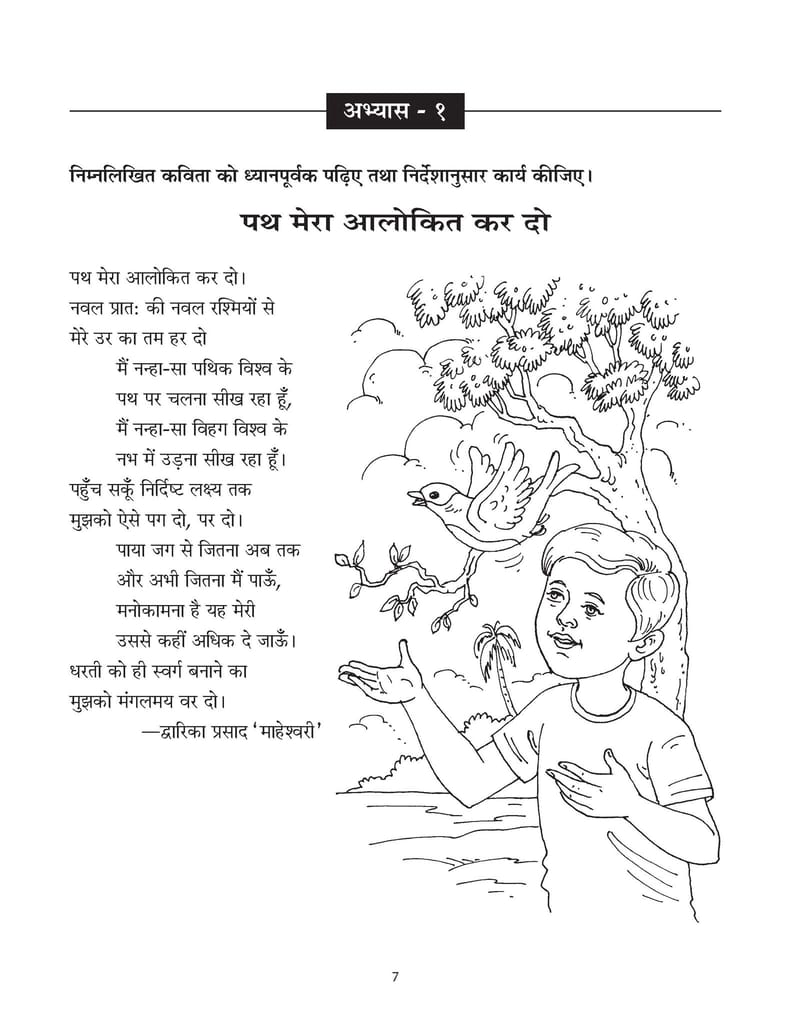 अभ्यास - १
निम्नलिखित कविता को ध्यानपूर्वक पढ़िए तथा निर्देशानुसार कार्य कीजिए।
पथ मेरा आलोकित कर दो
पथ मेरा आलोकित कर दो।
नवल प्रात: की नवल रश्मियों से
मेरे उर का तम हर दो
मैं नन्हा-सा पथिक विश्व के
पथ पर चलना सीख रहा हूँ,
मैं नन्हा-सा विहग विश्व के
नभ में उड़ना सीख रहा हूँ।
पहुँच सकूँ निर्दिष्ट लक्ष्य तक
मुझको ऐसे पग दो, पर दो।
पाया जग से जितना अब तक
और अभी जितना मैं पाऊँ,
मनोकामना है यह मेरी
उससे कहीं अधिक दे जाऊँ।
धरती को ही स्वर्ग बनाने का
मुझको मंगलमय वर दो।
—द्वारिका प्रसाद ‘माहेश्वरी’
7